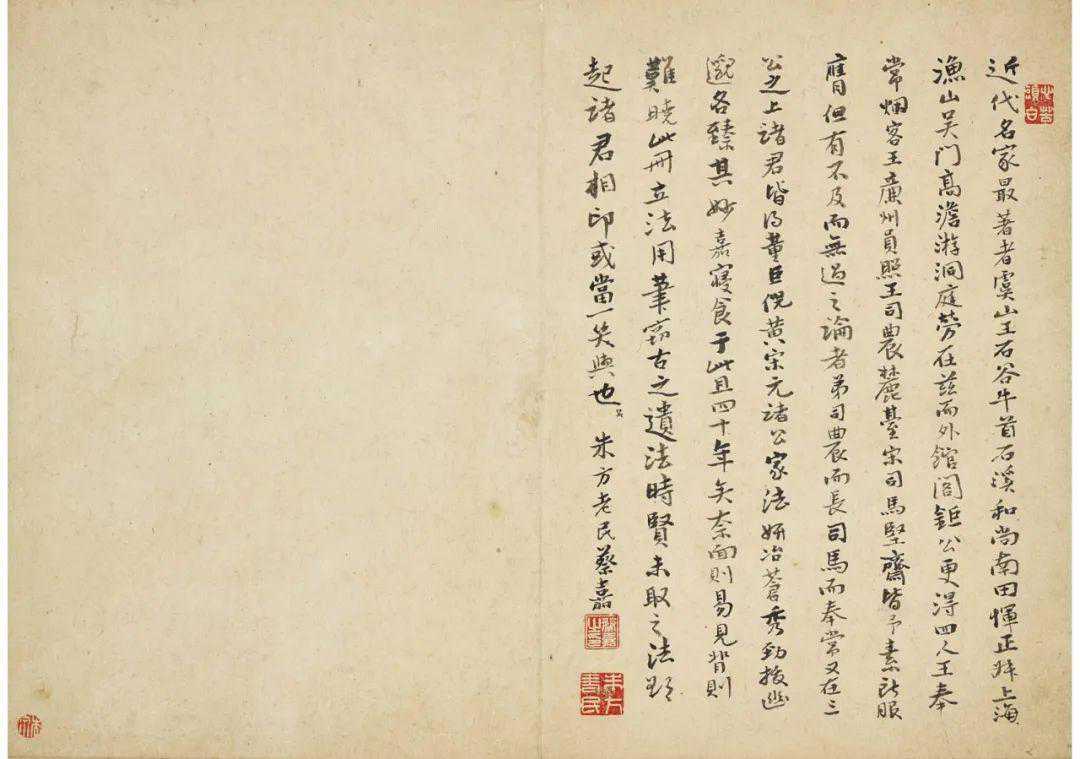 近代名家最著者虞山王石谷牛首石溪和尚南田惲正叔上海
漁山吳门高澹游洞庭勞在兹而外館閣鉅公更得四人王奉
常烟客王廉州員照王司農麓臺宋司馬堅齋皆予素所服
膺但有不及而無過之論者弟司農而長司馬而奉常又在三
公之上諸君皆得董巨倪黄宋元諸公家法妍冶蒼秀勁拔幽
邈各臻其妙嘉寢食于此且四十年矣奈面則易見背則
難曉此冊立法用筆竊古之遺法時賢未取之法
起諸君相印或當一笑與也
朱方老民蔡嘉
蔡嘉之印
朱方老民